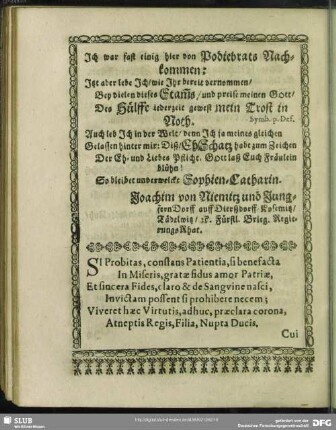 Ich war fast einig hier von Podiebrats Nach-
kommen:
Itzt aber lebe Ich/wie Ihr bereit vernommen/
Bey vielen dieses Stamms/ und preise meinen Gott/
Des Hülffe iederzeit gewest mein Trost in
Noth.
Symb. p. Def.
Auch leb Ich in der Welt/ denn Ich ja meines gleichen
Gelassen hinter mir: Diß/ EhSchatz habt zum Zeichen
Der Eh- und Liebes Pflicht. Gott laß Euch Fräulein
blühn!
So bleibet unverwelckt Sophien-Catharin.
Joachim von Niemitz und Jung-
fernDorff auff Dierßdorff Kosemitz/
Tadelwitz/ &c. Fürstl. Brieg. Regie-
rungs Rhat.
SI Probitas, constans Patientia, si benefacta
In Miseris, gratæ fidus amor Patriæ,
Et sincera Fides, claro & de Sangvine nasci,
Invictam possent si prohibere necem;
Viveret hæc Virtutis, adhuc, præclara corona,
Atneptis Regis, Filia, Nupta Ducis.
Cui
SLUB
Wir führen Wissen.
gefördert von der
Deutschen Forschungsgemeinschaft
DFG